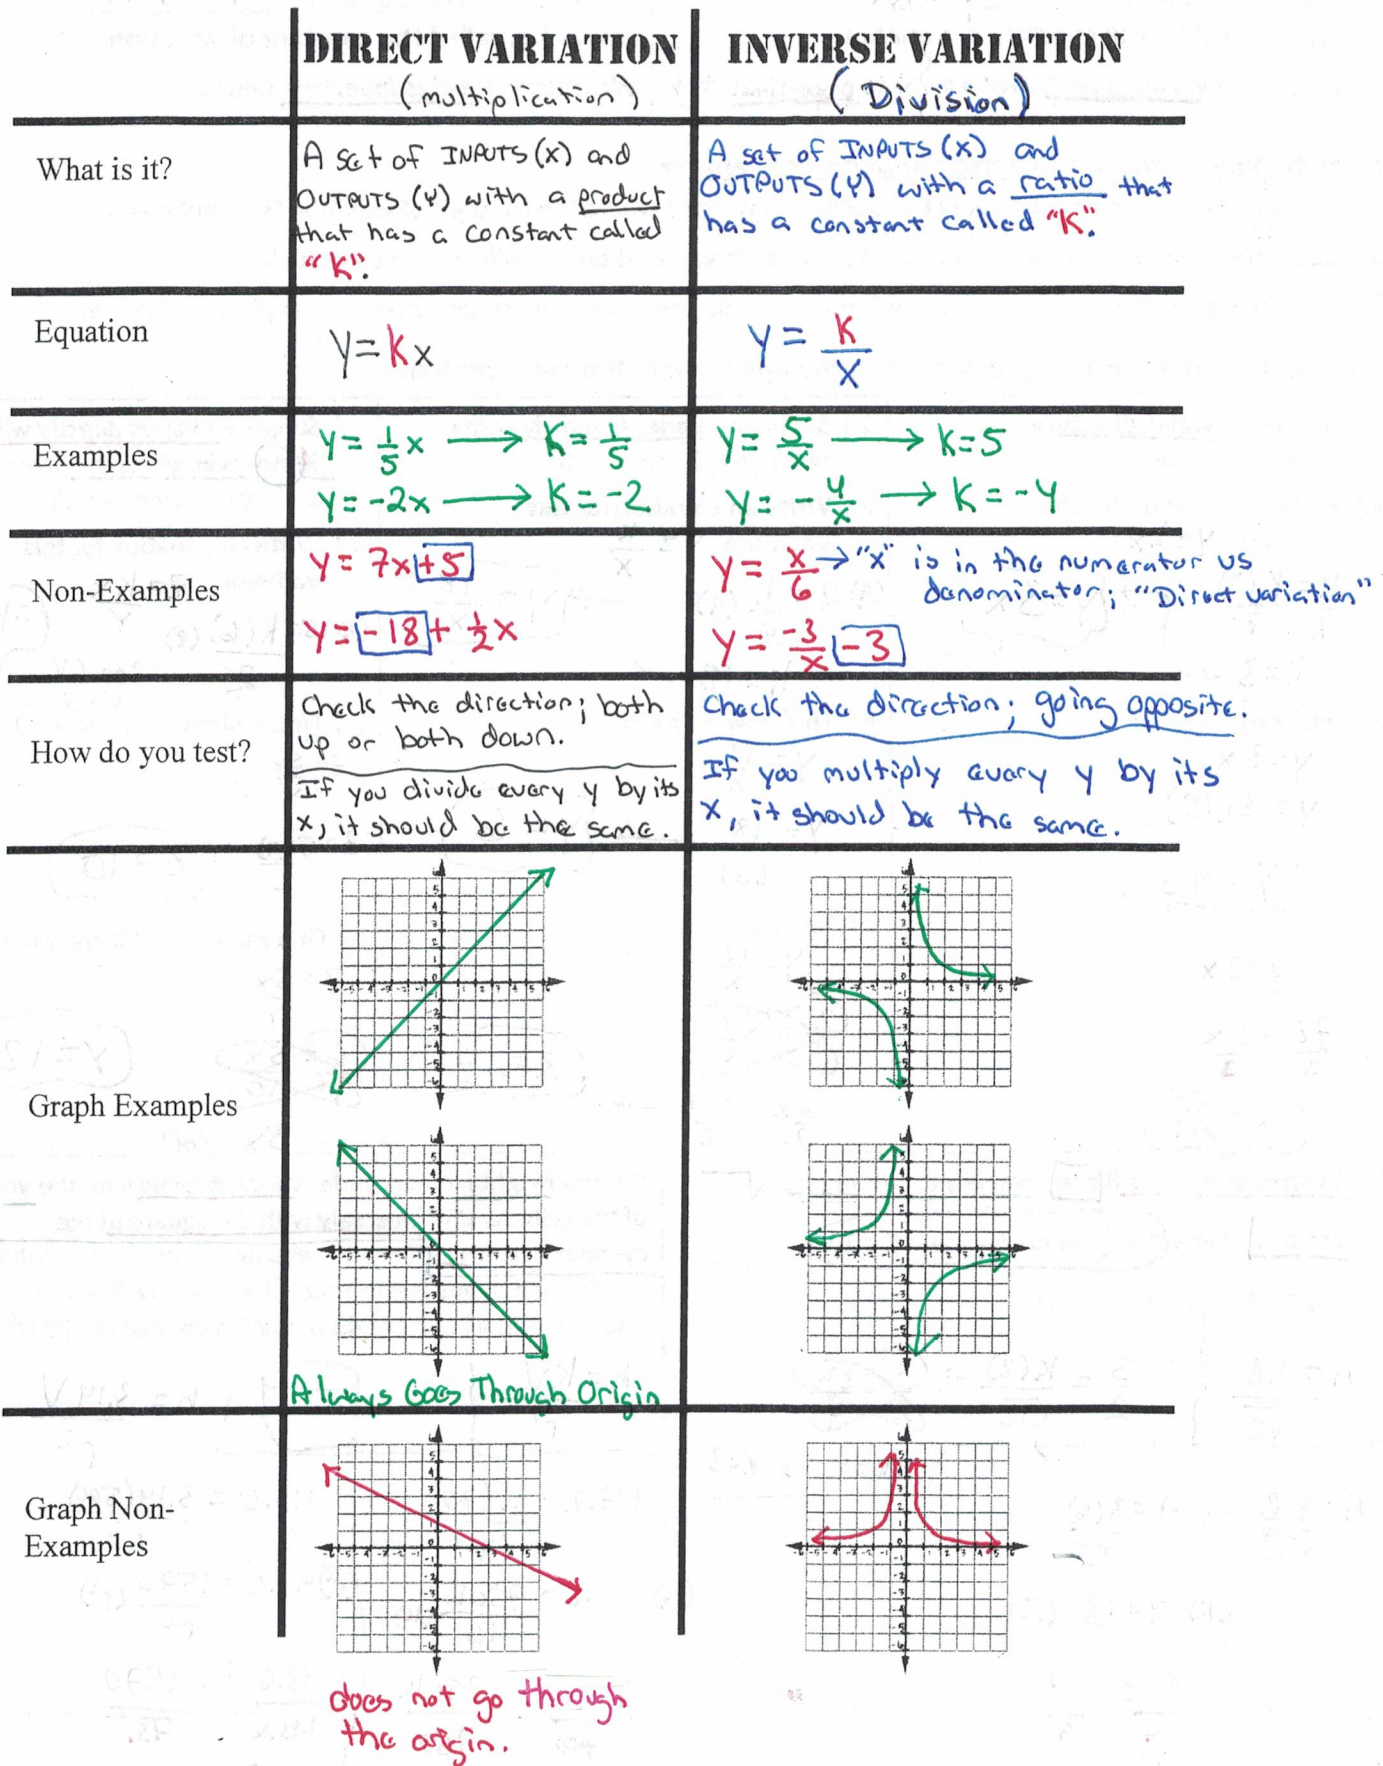 DIRECT VARIATION
(multiplication)
INVERSE VARIATION
(Division)
What is it?
A set of INPUTS (x) and
OUTPUTS (Y) with a product
that has a constant called
"K".
A set of INPUTS (X) and
OUTPUTS (Y) with a ratio that
has a constant called "K".
Equation
Y = Kx
Y = K/X
Examples
Y = 1/5 x → K = 1/5
Y = -2x → K = -2
Y = 5/x → K = 5
Y = -4/x → K = -4
Non-Examples
Y = 7x +5
Y = -18 + 1/2 x
Y = x/6 → "x" is in the numerator vs
denominator; "Direct variation"
Y = -3/x -3
How do you test?
Check the direction; both
up or both down.
If you divide every y by its
x, it should be the same.
Check the direction; going opposite.
If you multiply every y by its
x, it should be the same.
Graph Examples
Always Goes Through Origin
Graph Non-
Examples
does not go through
the origin.